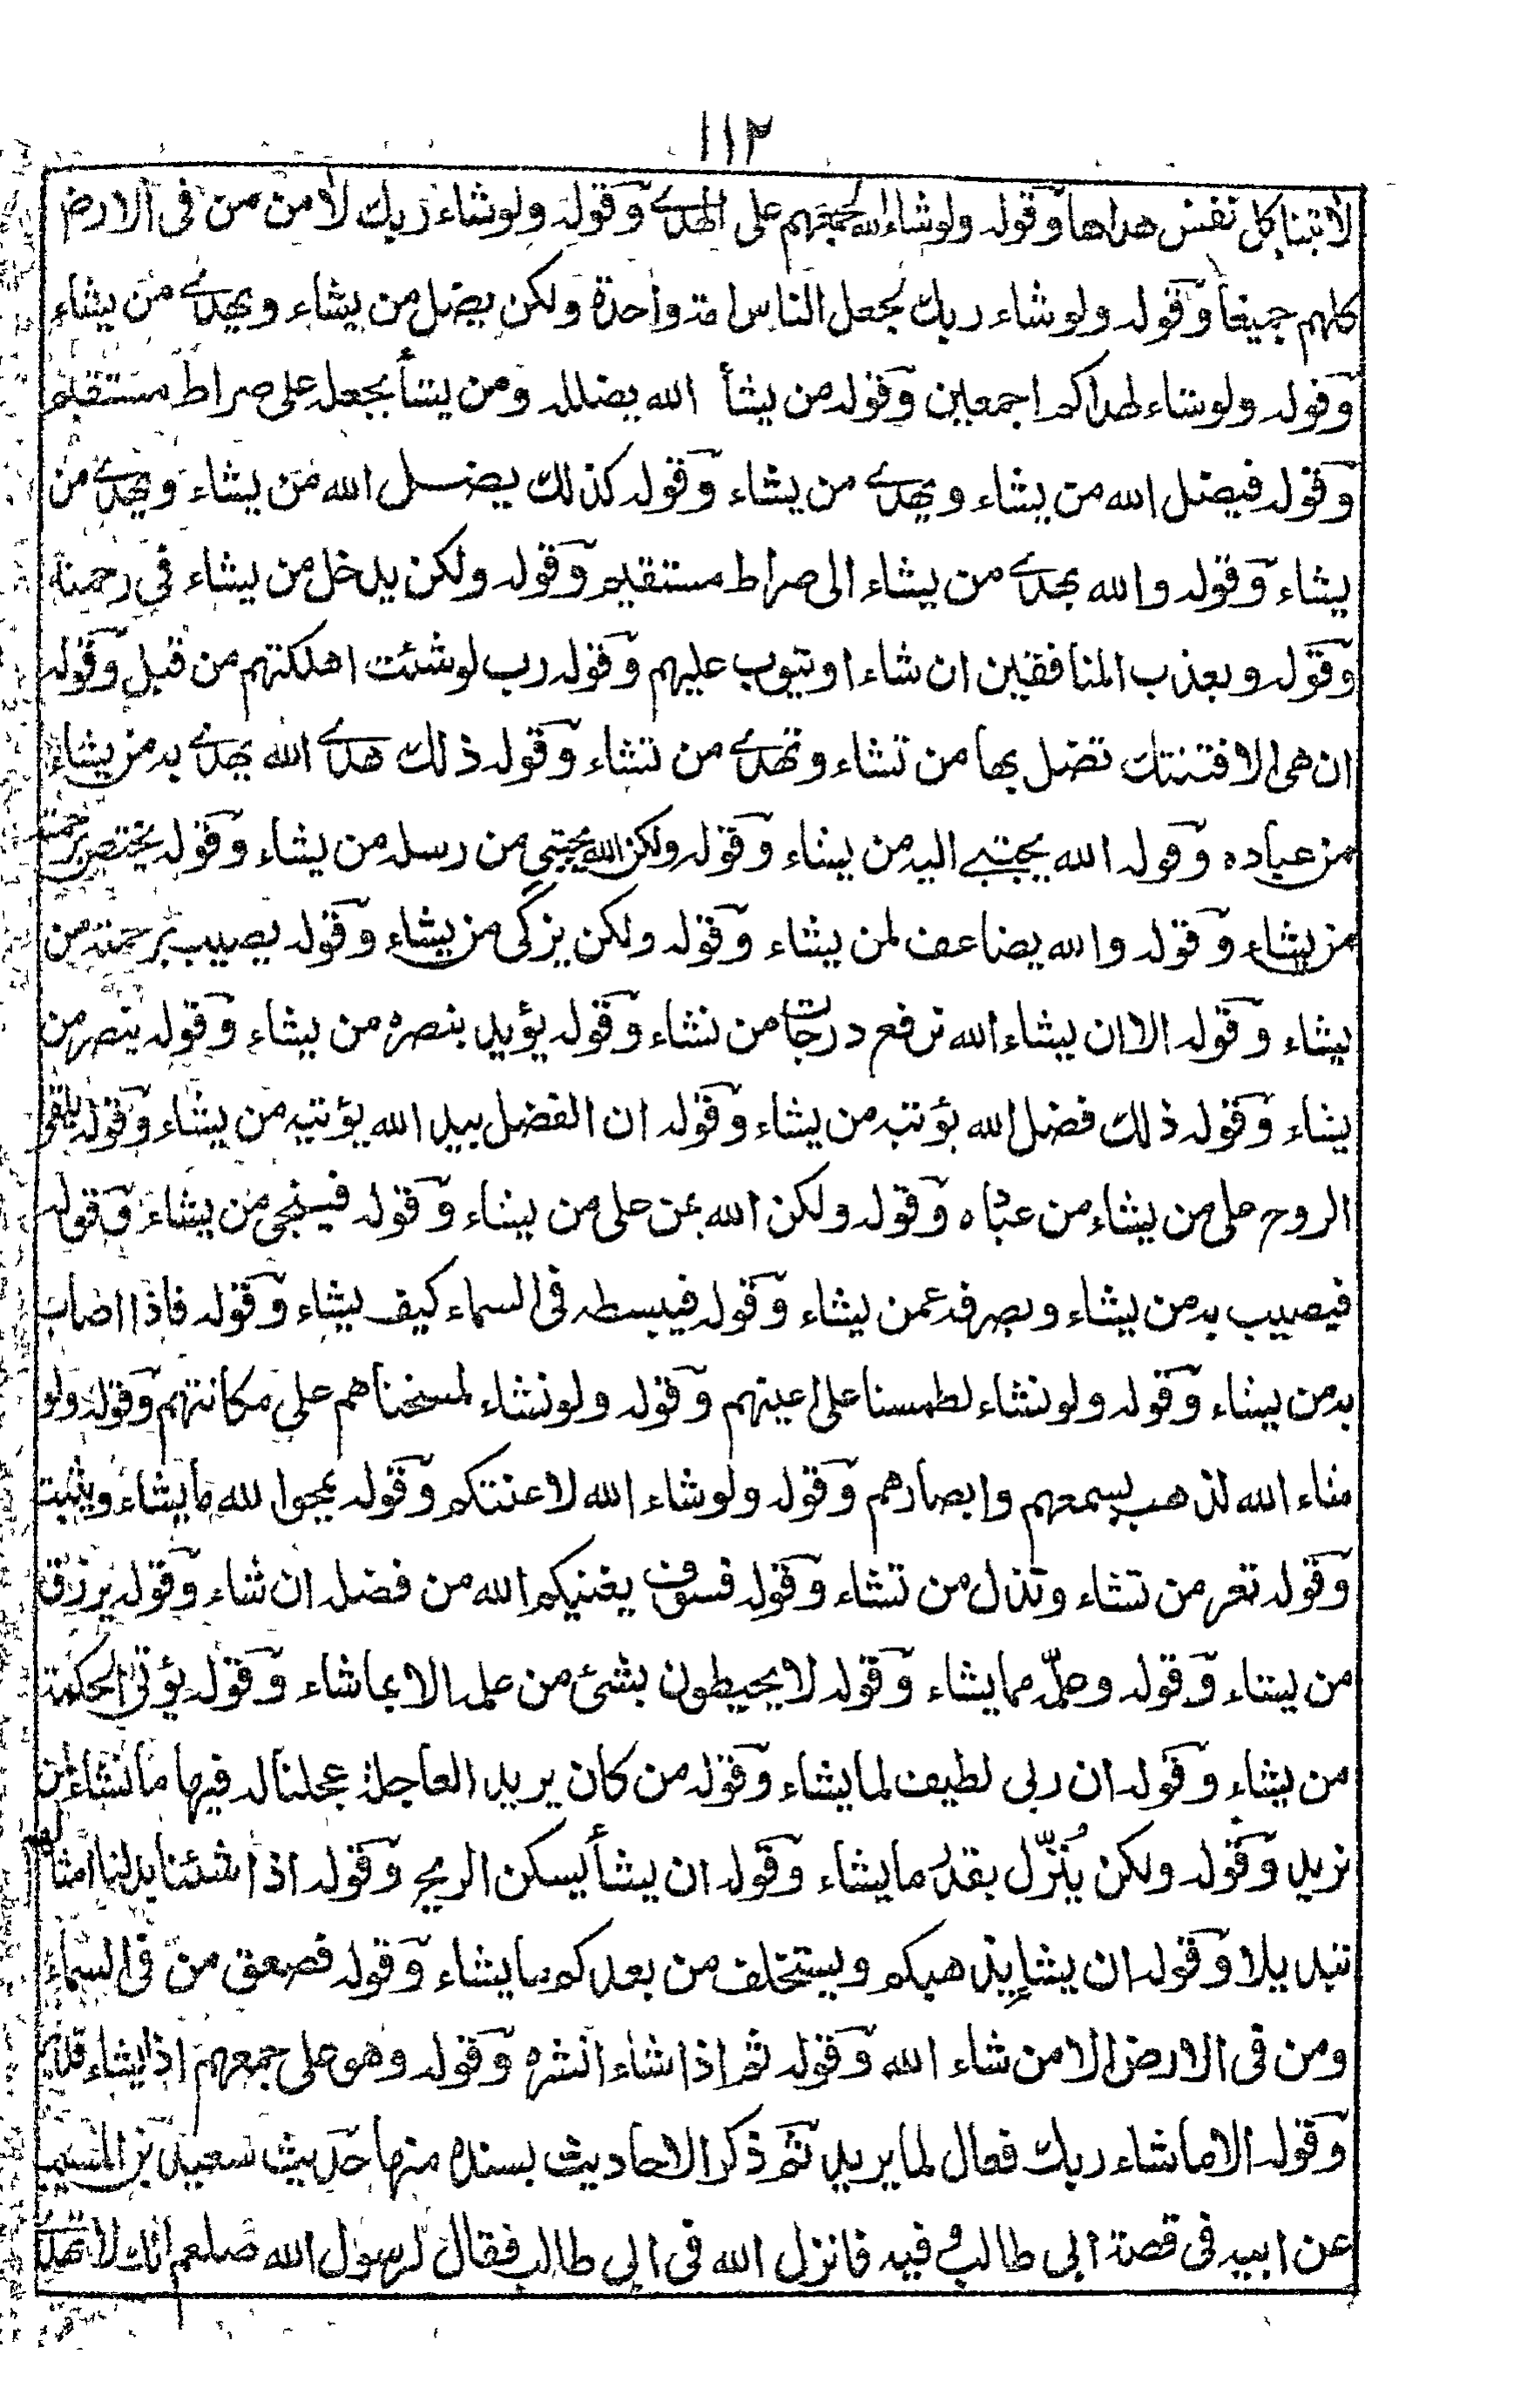 ١١٢
لأتينا كل نفس هداها وقوله ولو شاء الله لجمعهم على الهدى وقوله ولو شاء ربك لآمن من فى الارض
كلهم جميعا وقوله ولو شاء ربك لجعل الناس امة واحدة ولكن يضل من يشاء ويهدى من يشاء
وقوله ولو شاء لهداكم اجمعين وقوله من يشأ الله يضلله ومن يشأ يجعله على صراط مستقيم
وقوله فيضل الله من يشاء ويهدى من يشاء وقوله كذلك يضل الله من يشاء ويهدى من
يشاء وقوله والله يهدى من يشاء الى صراط مستقيم وقوله ولكن يدخل من يشاء فى رحمته
وقوله ويعذب المنافقين ان شاء او يتوب عليهم وقوله رب لو شئت اهلكتهم من قبل وقوله
ان هى الا فتنتك تضل بها من تشاء وتهدى من تشاء وقوله ذلك هدى الله يهدى به من يشاء
من عباده وقوله الله يجتبى اليه من يشاء وقوله ولكن الله يجتبى من رسله من يشاء وقوله يختص برحمته
من يشاء وقوله والله يضاعف لمن يشاء وقوله ولكن يزكى من يشاء وقوله يصيب برحمته من
يشاء وقوله الا ان يشاء الله نرفع درجات من نشاء وقوله يؤيد بنصره من يشاء وقوله ينصر من
يشاء وقوله ذلك فضل الله يؤتيه من يشاء وقوله ان الفضل بيد الله يؤتيه من يشاء وقوله يلقى
الروح على من يشاء من عباده وقوله ولكن الله يمن على من يشاء وقوله فينجى من يشاء وقوله
فيصيب به من يشاء ويصرفه عمن يشاء وقوله فيبسطه فى السماء كيف يشاء وقوله فاذا اصاب
به من يشاء وقوله ولو نشاء لطمسنا على اعينهم وقوله ولو نشاء لمسخناهم على مكانتهم وقوله ولو
شاء الله لذهب بسمعهم وابصارهم وقوله ولو شاء الله لاعنتكم وقوله يمحوا الله ما يشاء ويثبت
وقوله تعز من تشاء وتذل من تشاء وقوله فسوف يغنيكم الله من فضله ان شاء وقوله يرزق
من يشاء وقوله وعلّمه مما يشاء وقوله لا يحيطون بشئ من علمه الا بما شاء وقوله يؤتى الحكمة
من يشاء وقوله ان ربى لطيف لما يشاء وقوله من كان يريد العاجلة عجلنا له فيها ما نشاء لمن
نريد وقوله ولكن يُنَزّل بقدر ما يشاء وقوله ان يشأ يسكن الريح وقوله اذا شئنا بدلنا امثالهم
تبديلا وقوله ان يشأ يذهبكم ويستخلف من بعدكم ما يشاء وقوله فصعق من فى السماء
ومن فى الارض الا من شاء الله وقوله ثم اذا شاء انشره وقوله وهو على جمعهم اذا يشاء قدير
وقوله الا ما شاء ربك فعال لما يريد ثم ذكر الاحاديث بسنده منها حديث سعيد بن المسيب
عن ابيه فى قصة ابى طالب وفيه فانزل الله فى ابى طالب فقال لرسول الله صلعم انك لا تهدى